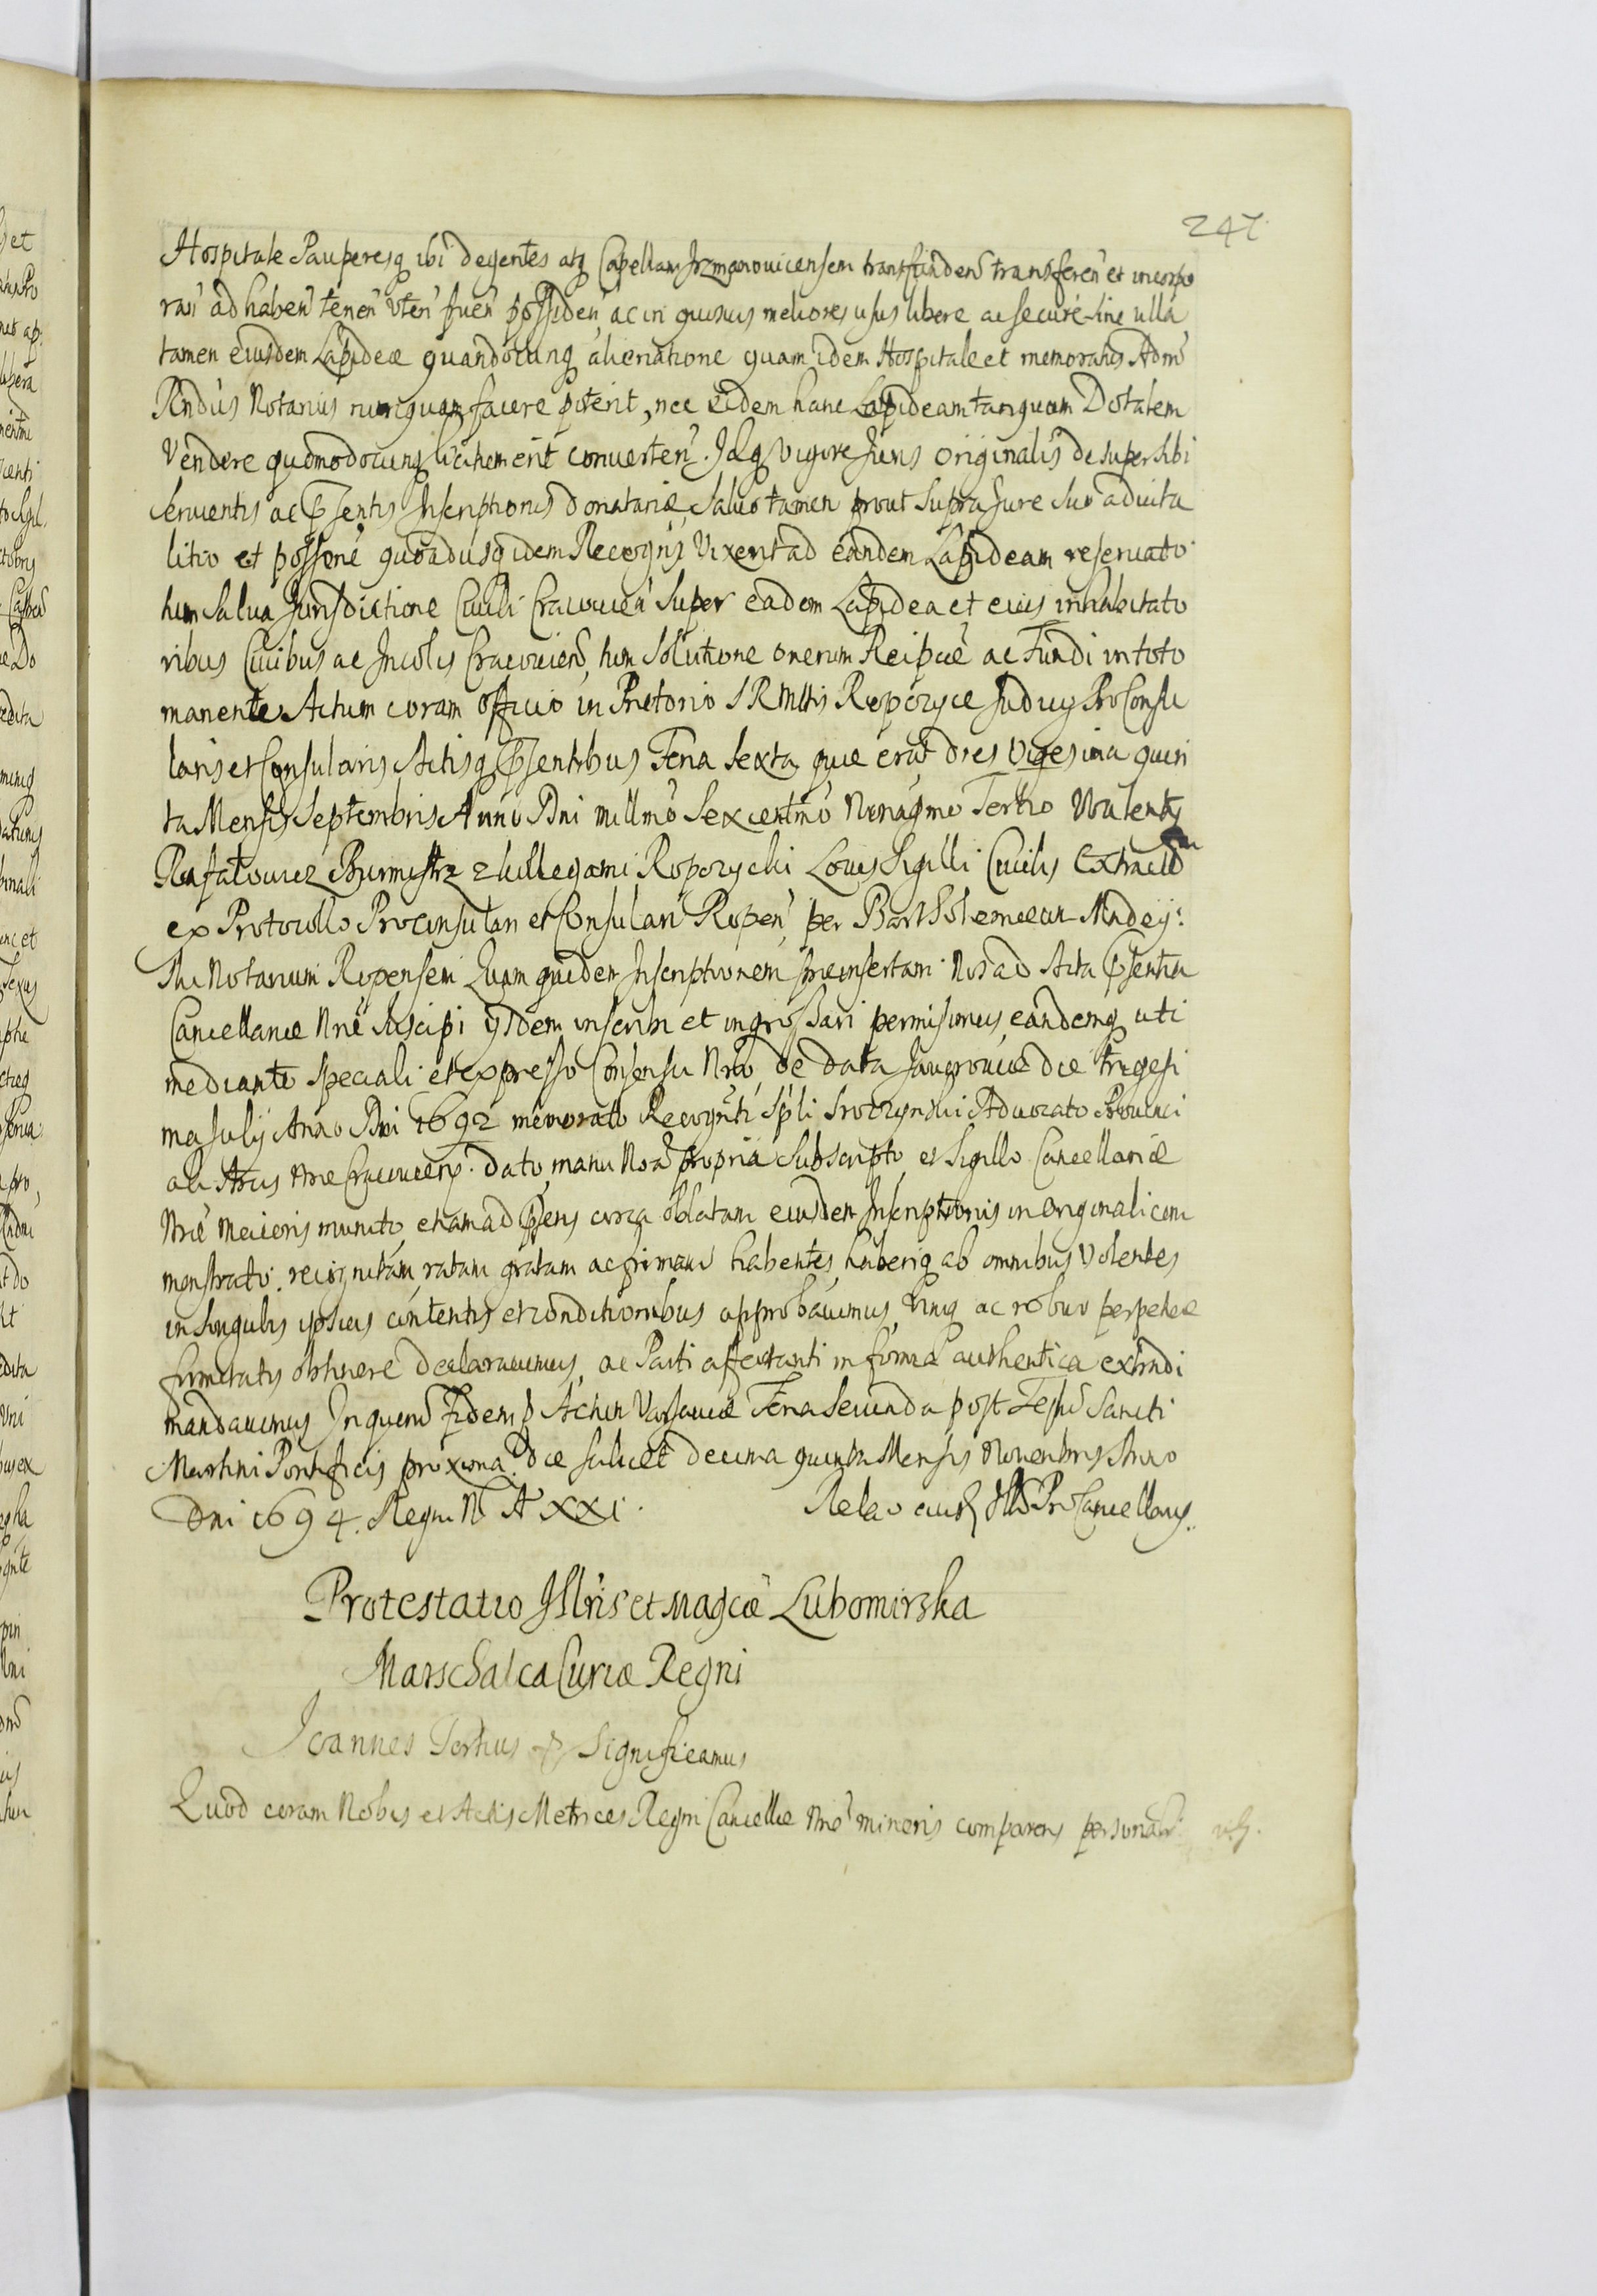 247
Hospitale Pauperesq ibi degentes atq Capellam Irzmanouicensem transfunden transferen et incorpo
ran ad haben tenen Vten fruen possiden ac in quosuis meliores usus libere ac secure sine ulla
tamen eiusdem Lapideæ quandocunq alienatione quam idem Hospitale et memoratus Adm
Rndus Notarius nunquam facere poterit, nec eidem hanc Lapideam tanquam Dotalem
Vendere quomodocunq licitum erit conuerten. Idq vigore Juris originalis desuper sibi
seruientis ac Psentis Inscriptionis donatariæ, saluo tamen prout supra Jure suo aduita
litio et possone quoadusq idem Recogns Vixerit ad eandem Lapideam reseruato
tum salua Jurisdictione Ciuili Cracouien super eadem Lapidea et eius inhabitato
ribus Ciuibus ac Incolis Cracouien, tum solutione onerum Reipcæ ac Fundi in toto
manente. Actum coram officio in Pretorio S R Mttis Ropczyce Judicy Pro Consu
laris et Consularis Actisq Psentibus Feria sexta quæ erat dies Vigesima quin
ta Mensis Septembris Anno Dni millmo Sexcentmo Nonagmo Tertio Walenty
Rafałowicz Burmistrz z kollegami Ropczycki Locus Sigilli Ciuilis Extractum
ex Protocollo Proconsulari et Consulari Ropcen per Bartholomeum Madey
Notarium Ropcensem Quam quidem Inscriptionem præinsertam Nos ad Acta Psentia
Cancellariæ Nræ suscipi ysdem inscribi et ingrossari permisimus, eandemq uti
mediante speciali et expresso Consensu Nro, de data Jauorouiæ die trigesi
ma July Anno Dni 1692 memorato Recognti Spli Srocynski Aduocato Prouinci
ali Arcis nræ Cracouiens. dato, manu Nra propria subscripto et Sigillo Cancellariæ
Nræ maioris munito, etiam ad Psens circa oblatam eiusdem Inscriptionis in originali com
monstrato. recognitam, ratam gratam ac firmam habentes, haberiq ab omnibus Volentes
in singulis ipsius contentis et conditionibus approbauimus, Vimq ac robur perpetuæ
firmitatis obtinere declarauimus, ac Parti affectanti in forma authentica extradi
mandauimus In quorum fidem P Actum Varsauiæ Feria secunda post Festum Sancti
Martini Pontificis proxima. die scilicet decima quinta Mensis Nouembris Anno
Dni 1694. Regni N A XXI. Relao eiusd Illmi Pro Cancellarij.
Protestatio Illris et Magcæ Lubomirska
Marschalca Curiæ Regni
Joannes Tertius & Significamus
Quod coram Nobis et Actis Metrices Regni Cancellæ Nræ minoris comparens personalr